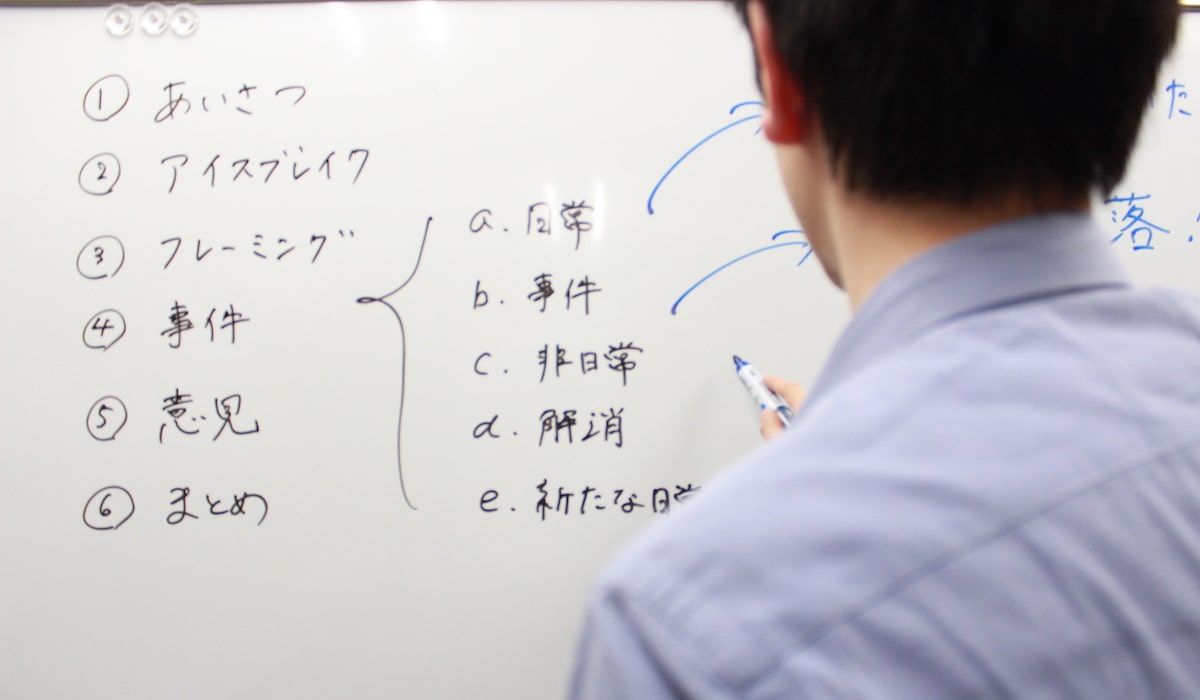 ① あいさつ
② アイスブレイク
③ フレーミング
④ 事件
⑤ 意見
⑥ まとめ
a. 日常
b. 事件
c. 非日常
d. 解消
e. 新たな日常
た
落